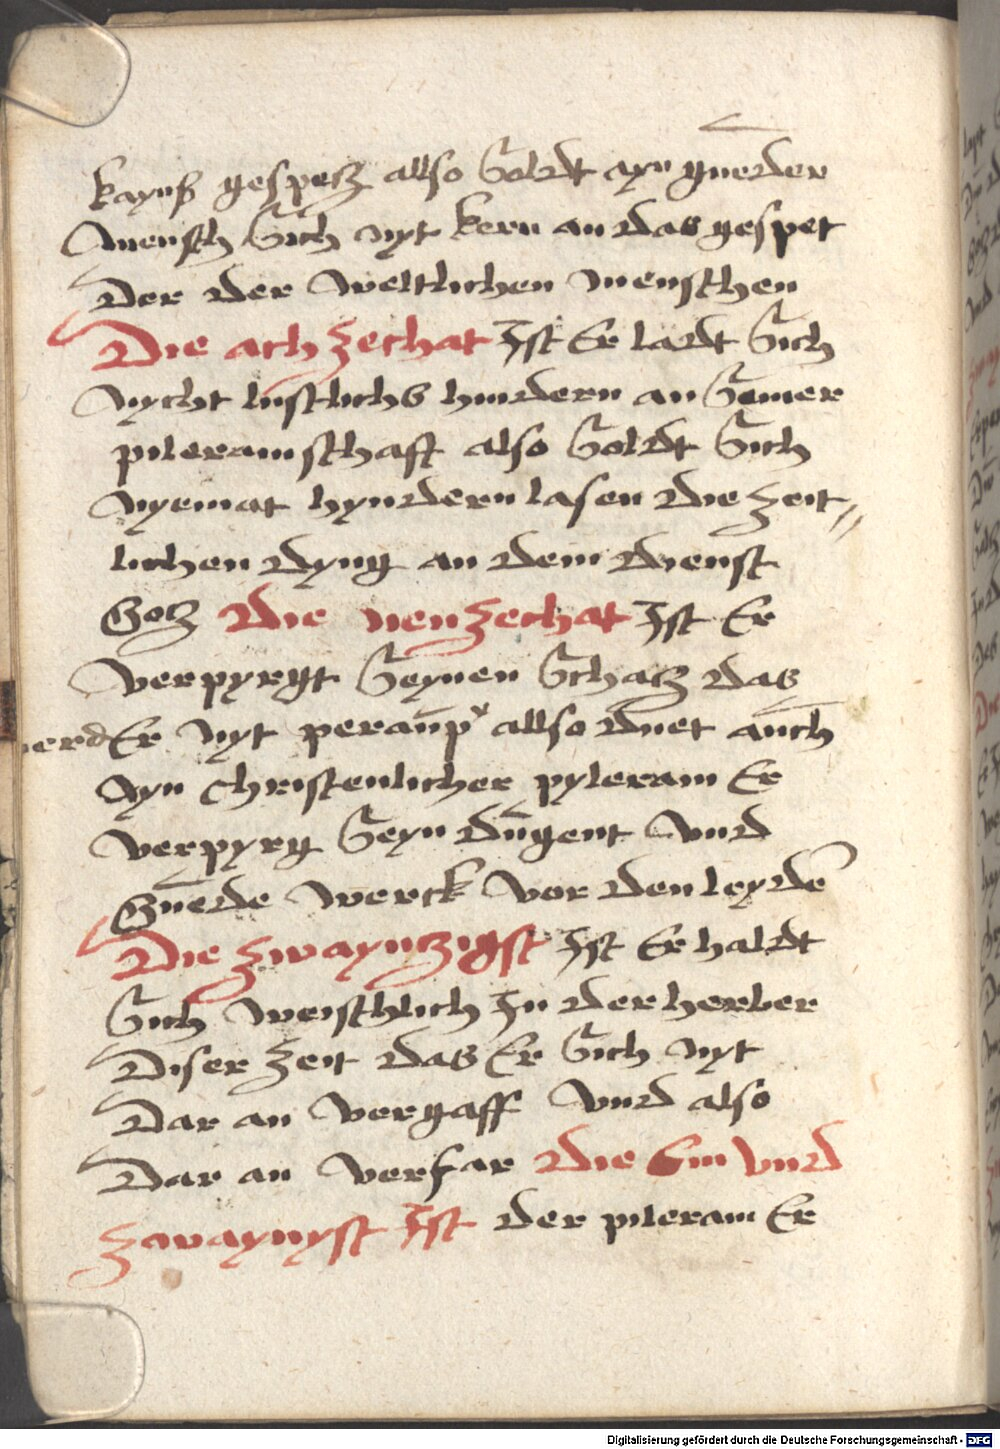 kaynß gespecz allso Soldt ayn gueder
mensch Sich nyt kern an das gespet
Der der weltlichen menschen
Die achzechat Ist Er ladt Sich
nycht lustlichs hindern an Seiner
pileramschaft also Soldt Sich
nyemat hyndern lasen die zeit„
lichen dyng an dem dienst
Gocz Die neuzechat Ist Er
verpyrgt Seynen Schacz das
werd Er nyt peraupt allso duet auch
Ayn christenlicher pyleram Er
verpyrg Seyn dugent vnd
Guede werck vor den leyden
Die zwaynczigst Ist Er haldt
Sich weischlich In der herber
Diser zeit das Er Sich nyt
Dar an vergaff vnd also
Dar an verfar Die Ein vnd
zwaynyst Ist der pileram Er
Digitalisierung gefördert durch die Deutsche Forschungsgemeinschaft - DFG